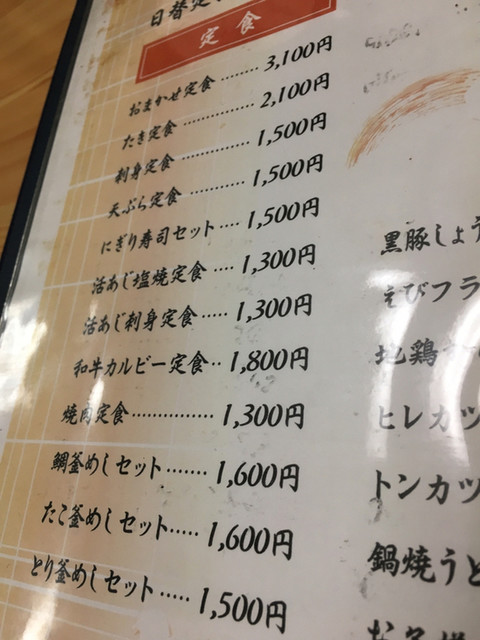 日替定
定食
おまかせ定食 ········ 3,100円
たき定食 ·············· 2,100円
刺身定食 ·············· 1,500円
天ぷら定食 ··········· 1,500円
にぎり寿司セット ···· 1,500円
活あじ塩焼定食 ···· 1,300円
活あじ刺身定食 ····· 1,300円
和牛カルビー定食 ·· 1,800円
焼肉定食 ··············· 1,300円
鯛釜めしセット ······· 1,600円
たこ釜めしセット ····· 1,600円
とり釜めしセット ····· 1,500円
黒豚しょう
えびフラ
地鶏
ヒレカツ
トンカツ
鍋焼うど